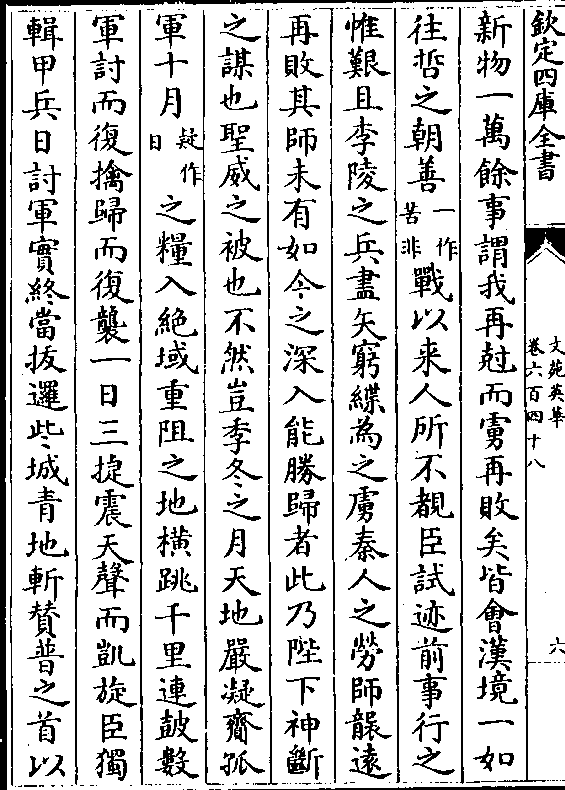 欽定四庫全書
文苑英華
卷六百四十八
六
新物一萬餘事謂我再尅而雺再敗矣皆會漢境一如
往哲之朝善一作苦非戰以来人所不覩臣試迹前事行之
惟艱且李陵之兵盡矢窮緤為之虜秦人之勞師襲遠
再敗其師未有如今之深入能勝歸者此乃陛下神斷
之謀也聖威之被也不然豈季冬之月天地嚴凝齎孤
軍十月疑作日之糧入絶域重阻之地横跳千里連皷數
軍討而復擒歸而復襲一日三捷震天聲而凱旋臣獨
輯甲兵日討軍實終當拔邏些城青地斬賛普之首以